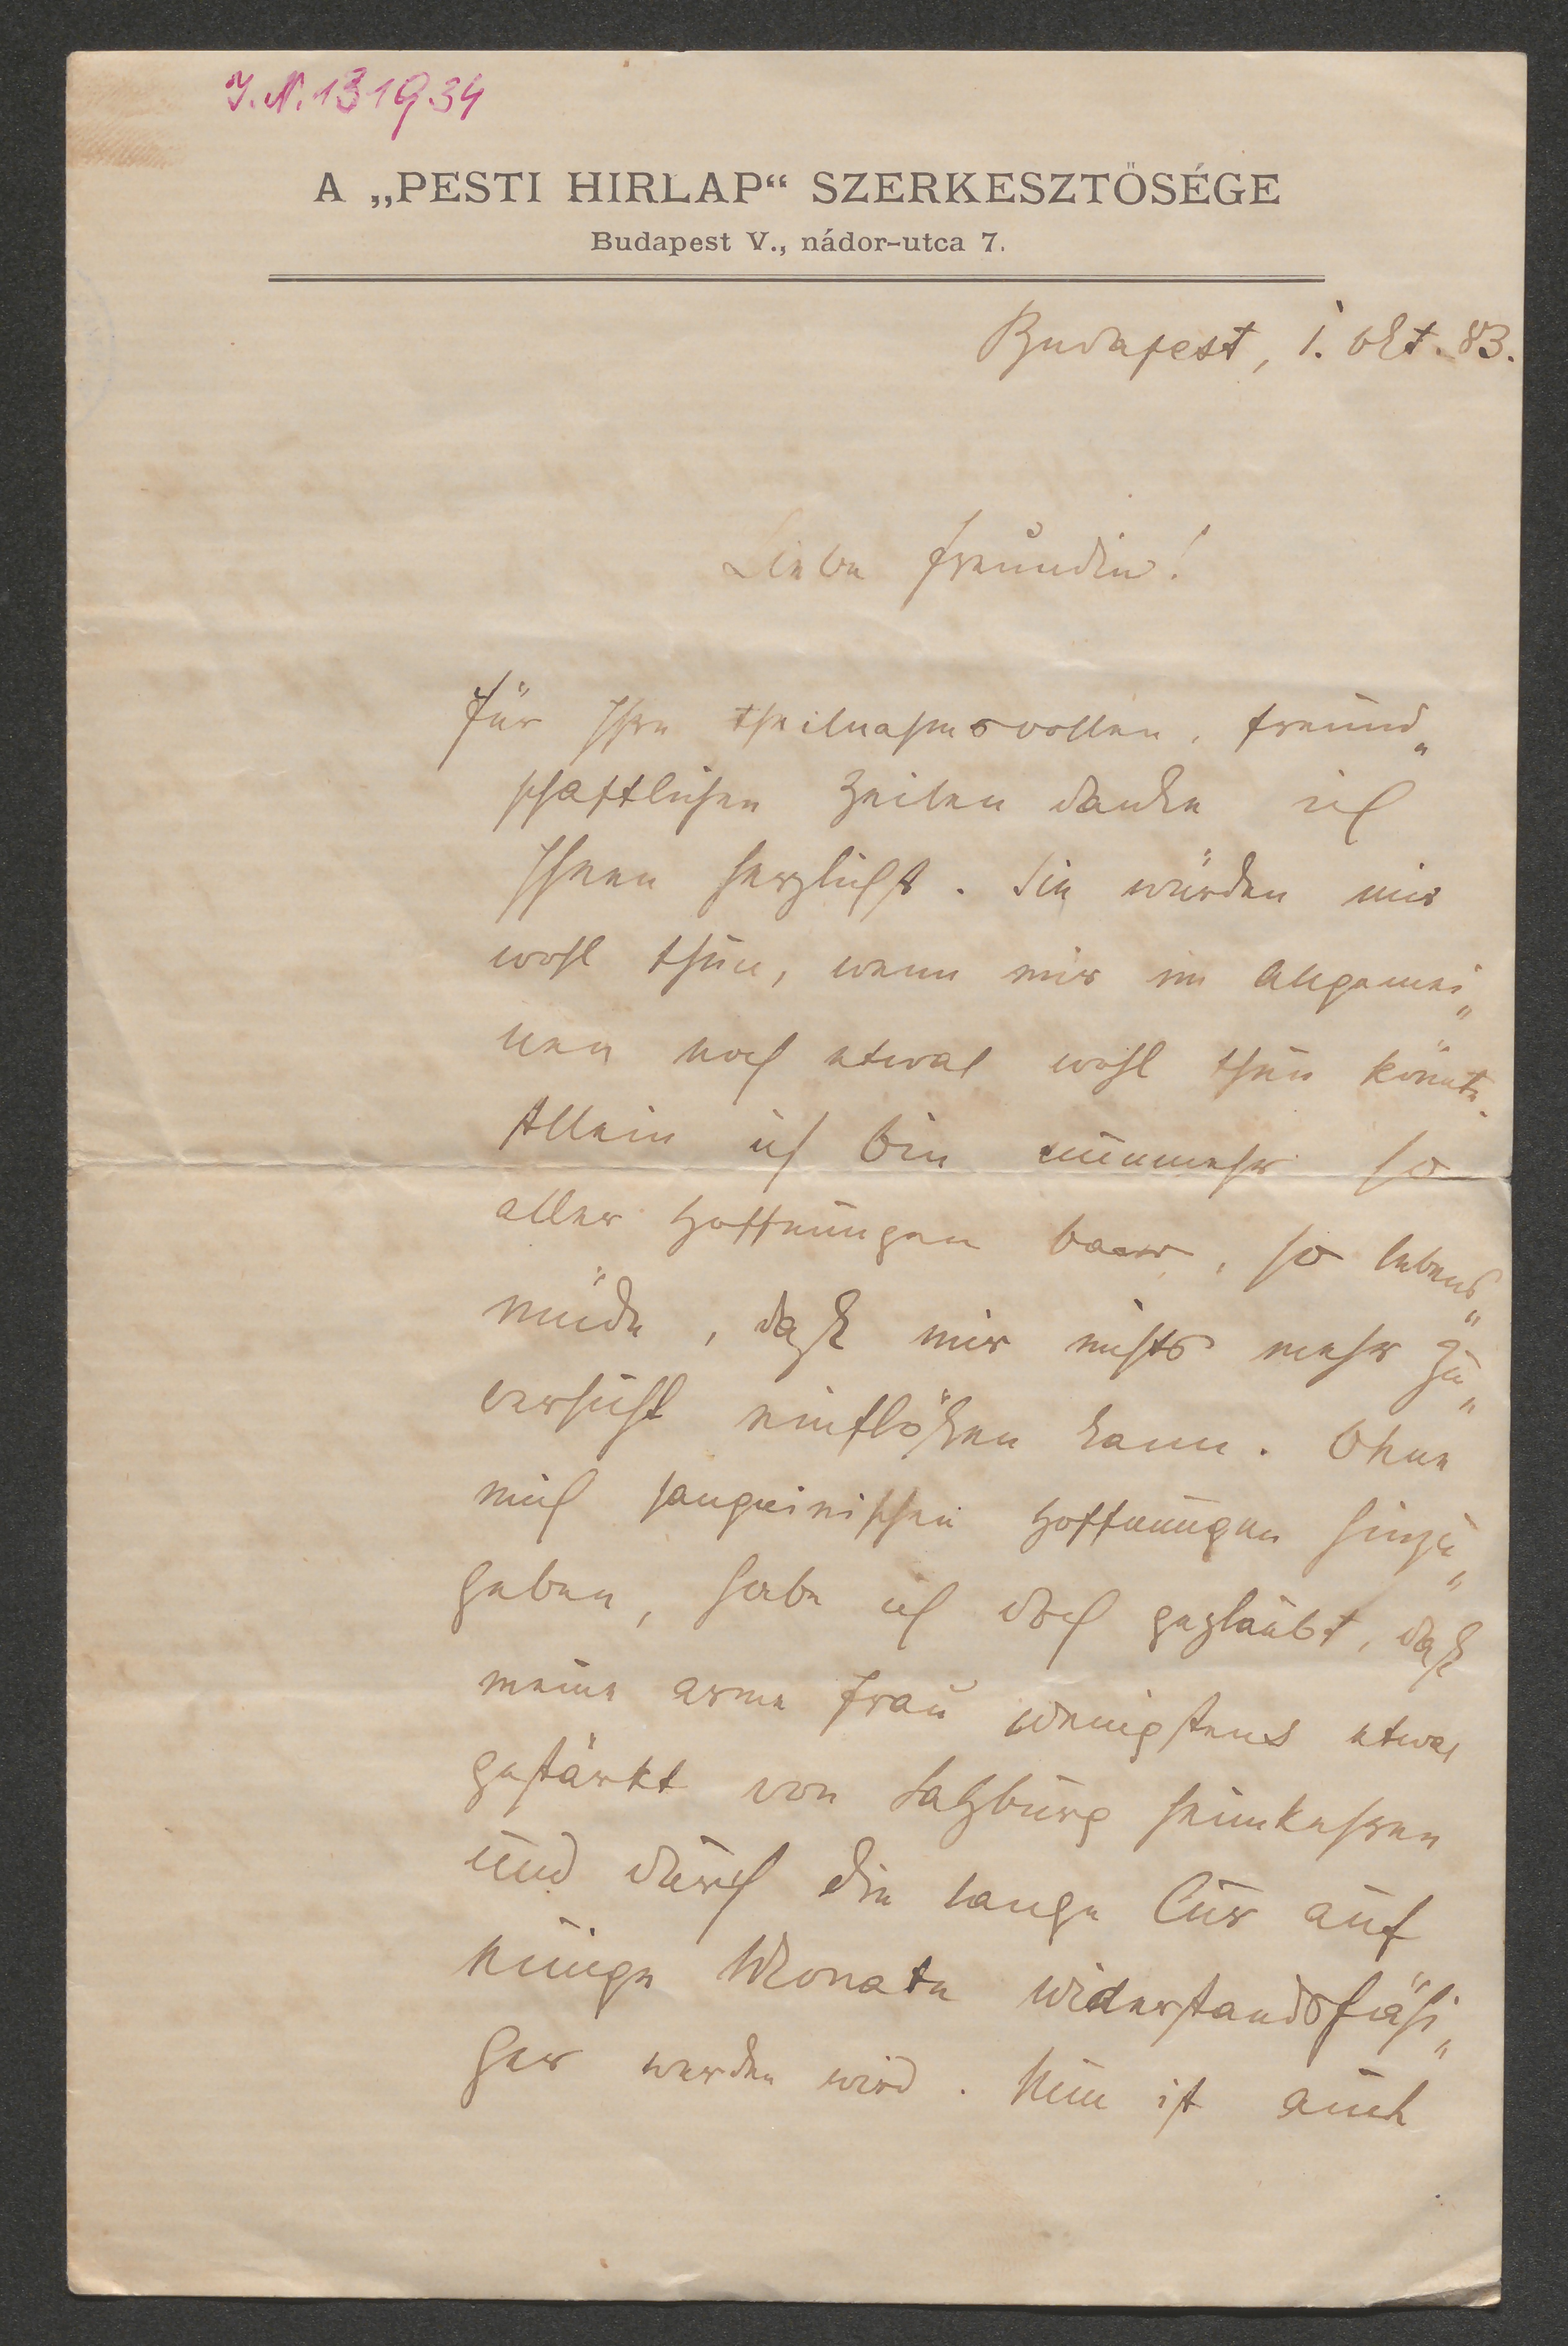 J. N. 131934
A „PESTI HIRLAP“ SZERKESZTÖSÉGE
Budapest V., nádor-utca 7.
Budapest, 1. Okt. 83.
Liebe Freundin!
Für Ihre theilnahmsvollen, freund„
schaftlichen Zeilen danke ich
Ihnen herzlichst. Sie würden mir
wohl thun, wenn mir im Allgemei„
nen noch etwas wohl thun könnte.
Allein ich bin nunmehr so
aller Hoffnungen baar, so lebens„
müde, daß mir nichts mehr Zu„
versicht einflößen kann. Ohne
mich sanguinischen Hoffnungen hinzu„
geben, habe ich doch geglaubt, daß
meine arme Frau wenigstens etwas
gestärkt von Salzburg heimkehren
und durch die lange Cur auf
einige Monate widerstandsfähi„
ger werden wird. Nun ist auch